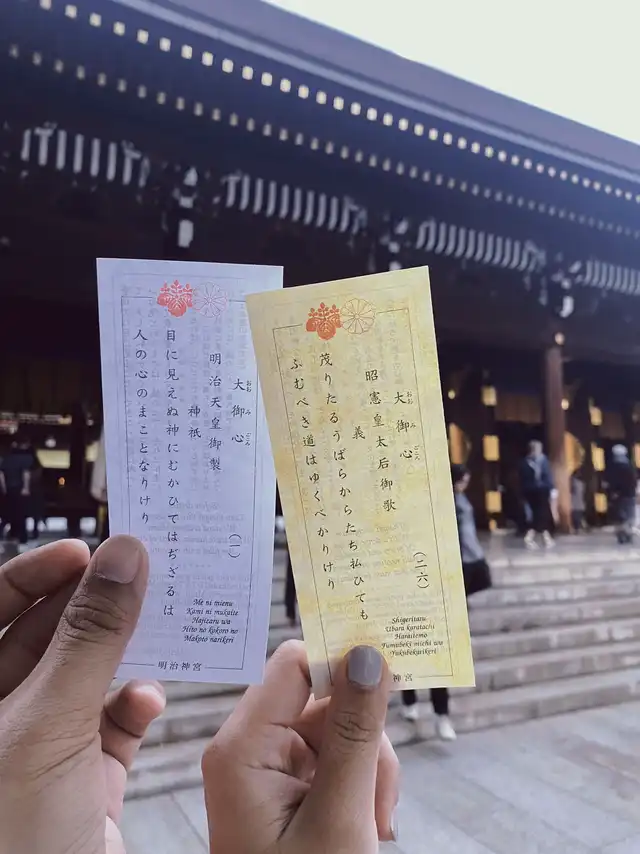 大御心
明治天皇御製
神祇
目に見えぬ神にむかひてはぢざるは
人の心のまことなりけり
Me ni mienu
Kami ni mukaite
Hajizaru wa
Hito no kokoro no
Makoto narikeri
明治神宮
大御心
昭憲皇太后御歌
(二六)
義
茂りたるうばらからたち払ひても
ふむべき道はゆくべかりけり
Shigeritaru
Ubara karatachi
Haraitemo
Fumubeki michi wa
Yukubekarikeri
神宮